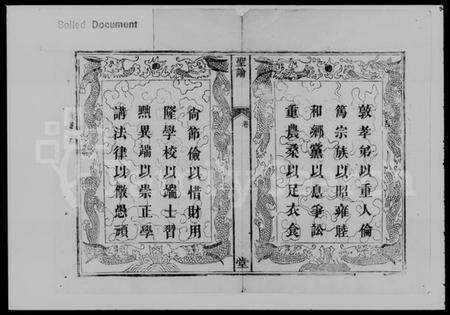 Soiled Document
聖諭
卷
堂
敦孝弟以重人倫
篤宗族以昭雍睦
和鄉黨以息爭訟
重農桑以足衣食
尙節儉以惜財用
隆學校以端士習
黜異端以崇正學
講法律以儆愚頑